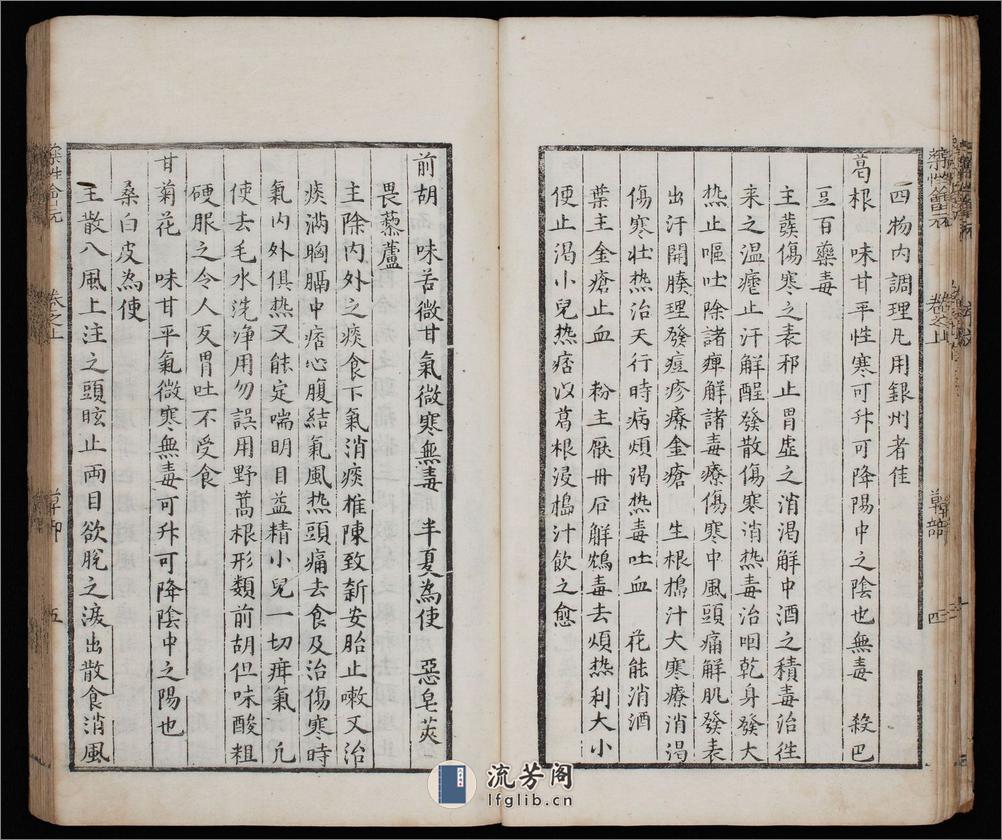 四物内調理凡用銀州者佳
葛根　味甘平性寒可升可降陽中之陰也無毒　殺巴
豆百藥毒
主發傷寒之表邪止胃虛之消渴解中酒之積毒治徃
来之温瘧止汗解酲發散傷寒消热毒治咽乾身發大
热止嘔吐除諸痺解諸毒療傷寒中風頭痛解肌發表
出汗開腠理發痘疹療金瘡　生根搗汁大寒療消渴
傷寒壮热治天行時病煩渴热毒吐血　花能消酒
葉主金瘡止血　粉主壓丹石解鴆毒去煩热利大小
便止渴小兒热痞以葛根浸搗汁飲之愈
前胡　味苦微甘氣微寒無毒　半夏為使　惡皂莢
畏藜蘆
主除内外之痰食下氣消痰推陳致新安胎止嗽又治
痰滿胸膈中痞心腹結氣風热頭痛去食及治傷寒時
氣内外俱热又能定喘明目益精小兒一切疳氣　凡
使去毛水洗浄用勿誤用野蒿根形類前胡但味酸粗
硬服之令人反胃吐不受食
甘菊花　味甘平氣微寒無毒可升可降陰中之陽也
桑白皮為使
主散八風上注之頭眩止両目欲脫之淚出散食消風
藥性會元
卷之上
草部
四
卷之上
五
流芳阁
lfglib.cn